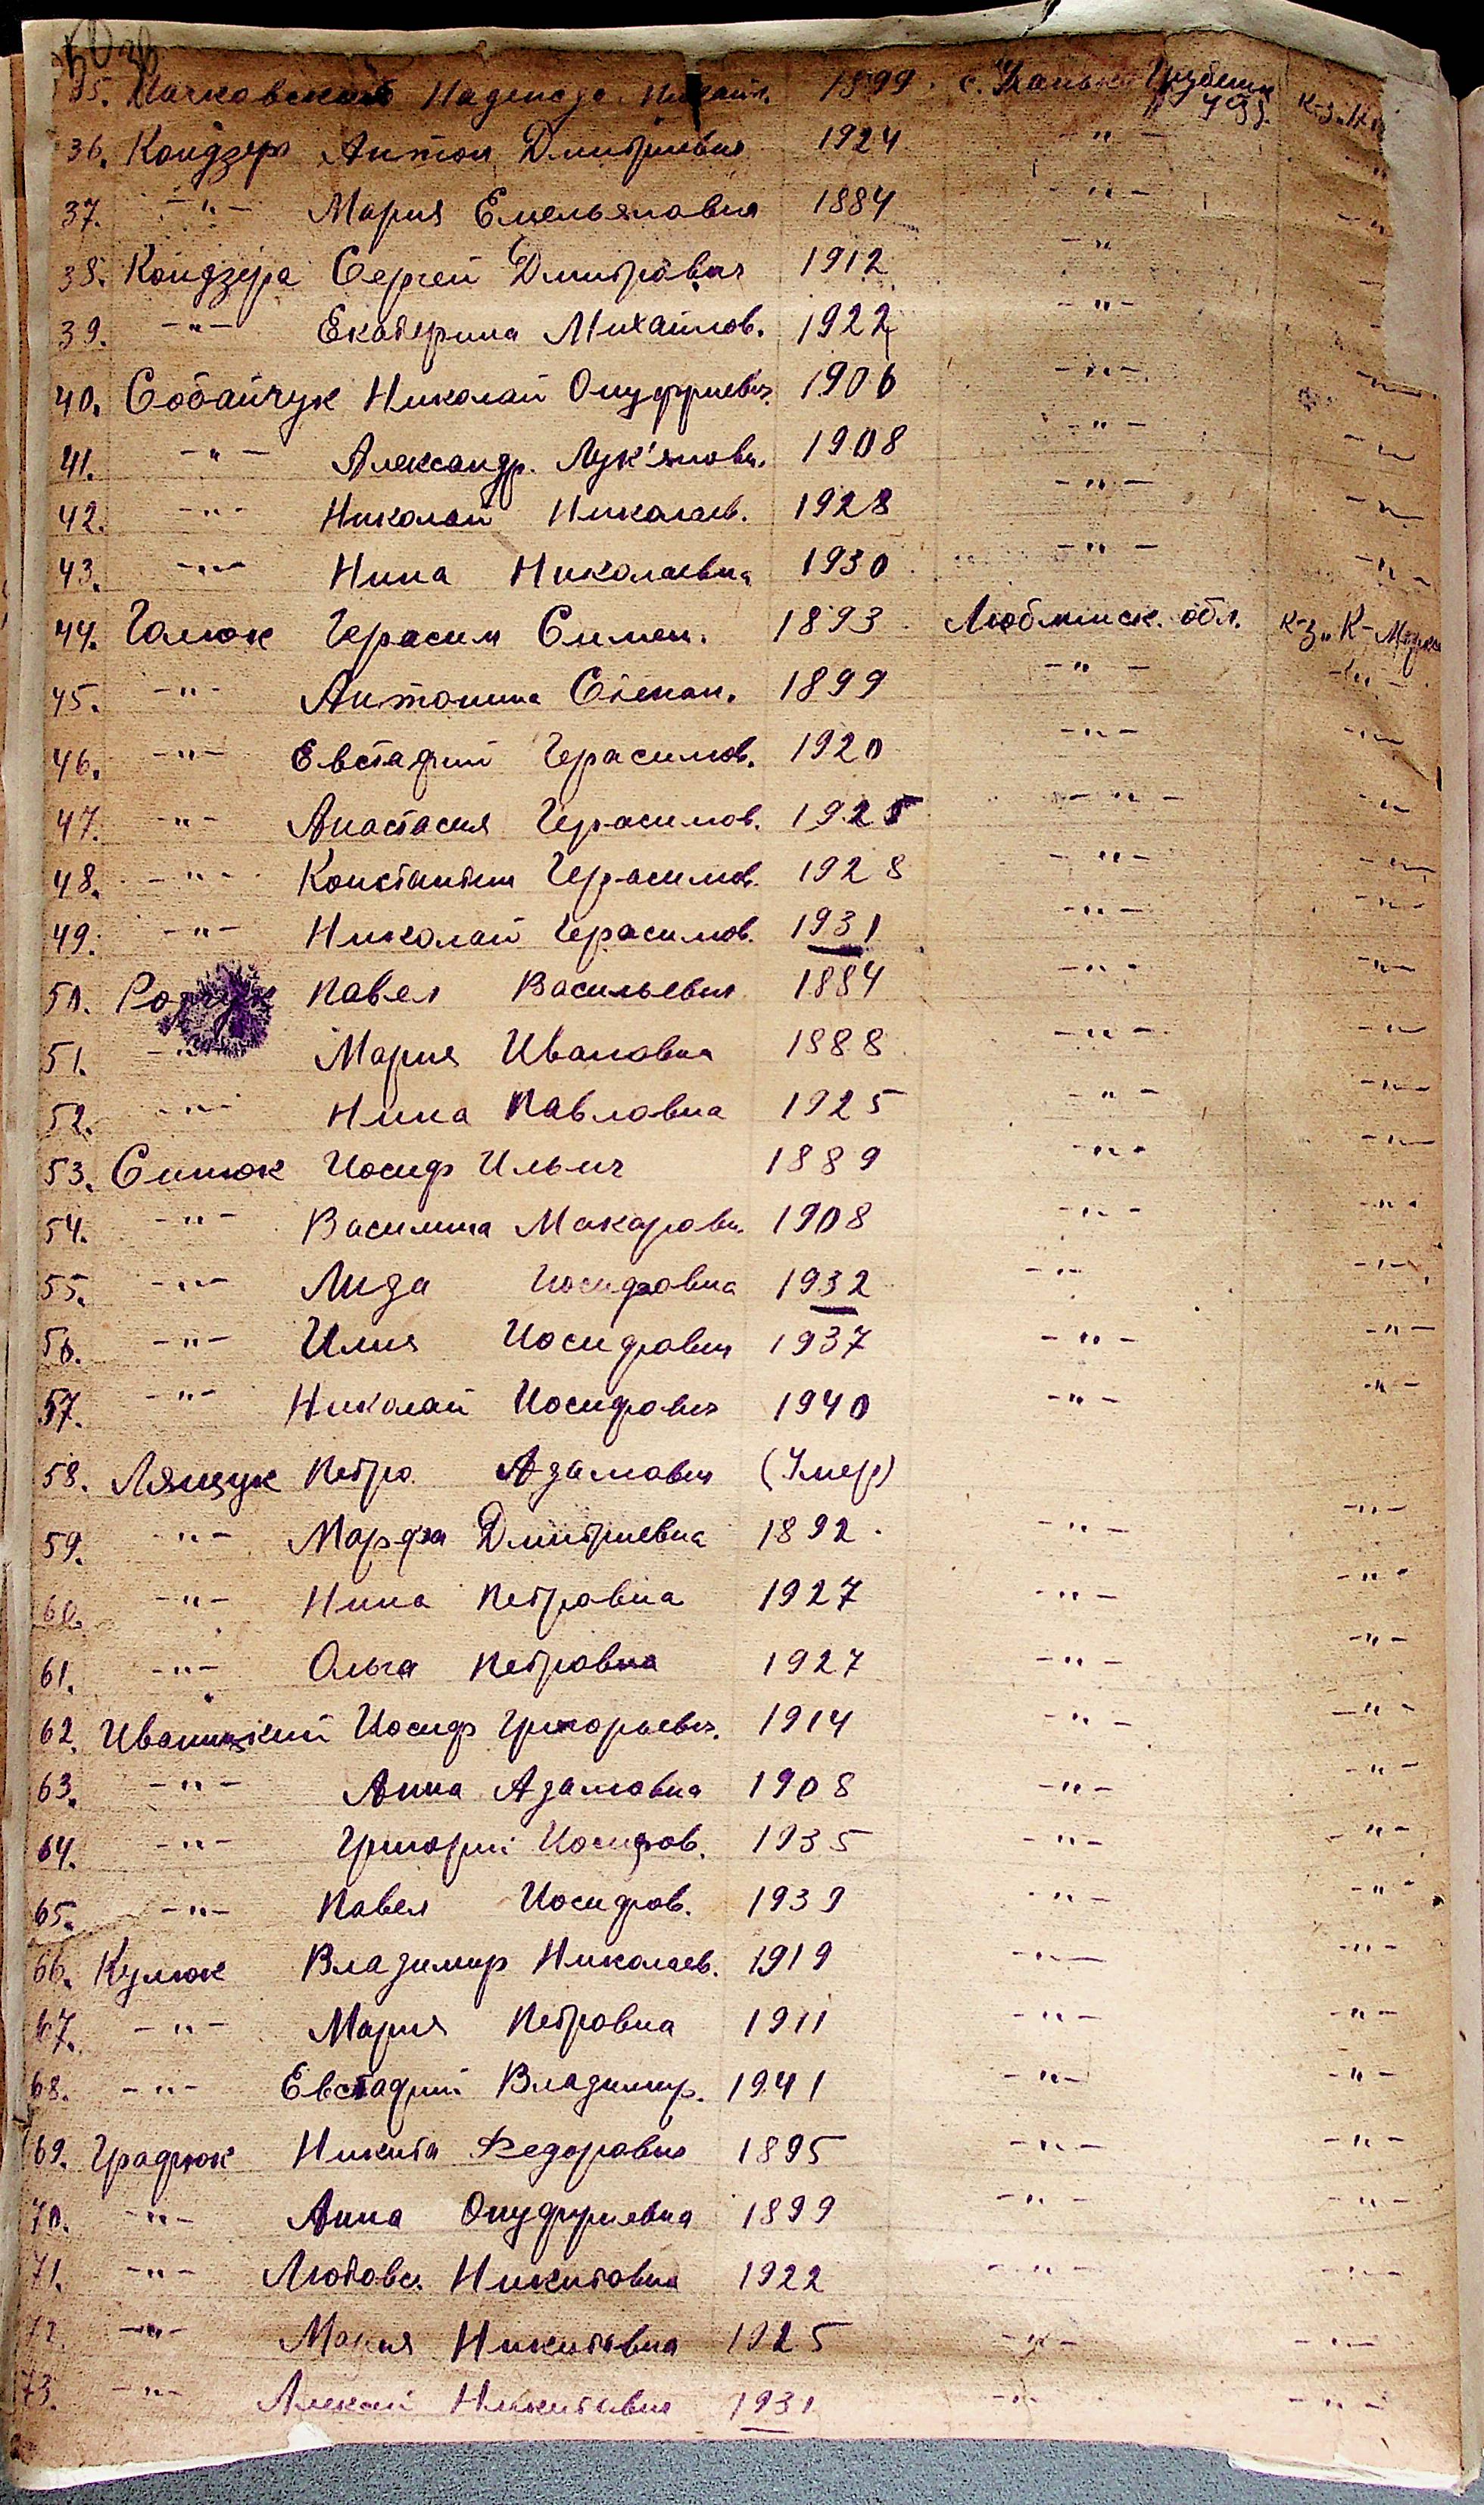 35. Надежда Михайл. 1899. с. Ханьки Грубеш. уезд. к-з "К
36. Кондзера Антон Дмитриевич 1924 -"- "
37. -"- Мария Емельяновна 1884 -"- -"
38. Кондзера Сергей Дмитрович 1912 -"
39. -"- Екатерина Михайлов. 1922 -"-
40. Собайчук Николай Онуфриевич. 1906 -"- -"-
41. -"- Александр. Лук'янови. 1908 -"- -"-
42. -"- Николай Николаев. 1928 -"- -"-
43. -"- Нина Николаевна 1930 -"- -"-
44. Галюк Герасим Симен. 1893 Люблинск. обл. к-з "К-Маркса
45. -"- Антонина Степан. 1899 -"- -"-
46. -"- Евстафий Герасимов. 1920 -"- -"-
47. -"- Анастасия Герасимов. 1925 -"- -"-
48. -"- Константин Герасимов. 1928 -"- -"-
49. -"- Николай Герасимов. 1931 -"- -"-
50. Павел Васильевич 1884 -"- -"-
51. -"- Мария Ивановна 1888 -"- -"-
52. -"- Нина Павловна 1925 -"- -"-
53. Ситюк Иосиф Ильич 1889 -"- -"-
54. -"- Василина Макаровн. 1908 -"- -"-
55. -"- Лиза Иосифовна 1932 -"- -"-
56. -"- Илия Иосифович 1937 -"- -"-
57. -"- Николай Иосифович 1940 -"- -"-
58. Лящук Петро Адамович (Умер)
59. -"- Марфа Дмитриевна 1892. -"- -"-
60. -"- Нина Петровна 1927 -"- -"-
61. -"- Ольга Петровна 1927 -"- -"-
62. Иваницкий Иосиф Григорьевич. 1914 -"- -"-
63. -"- Анна Адамовна 1908 -"- -"-
64. -"- Григорий Иосифов. 1935 -"- -"-
65. -"- Павел Иосифов. 1939 -"- -"-
66. Кулюк Владимир Николаев. 1919 -"- -"-
67. -"- Мария Петровна 1911 -"- -"-
68. -"- Евстафий Владимир. 1941 -"- -"-
69. Градюк Никита Федорович 1895 -"- -"-
70. -"- Анна Онуфриевна 1899 -"- -"-
71. -"- Любовь Никитовна 1922 -"- -"-
72. -"- Мария Никитовна 1925 -"- -"-
73. -"- Алексей Никитович 1931 -"- -"-